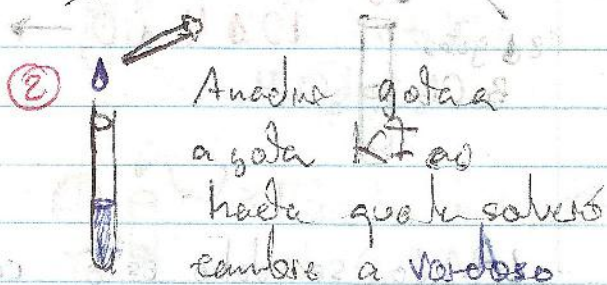 ② Anadir gota a
a gota KI ac
hasta que la solució
cambie a verdoso